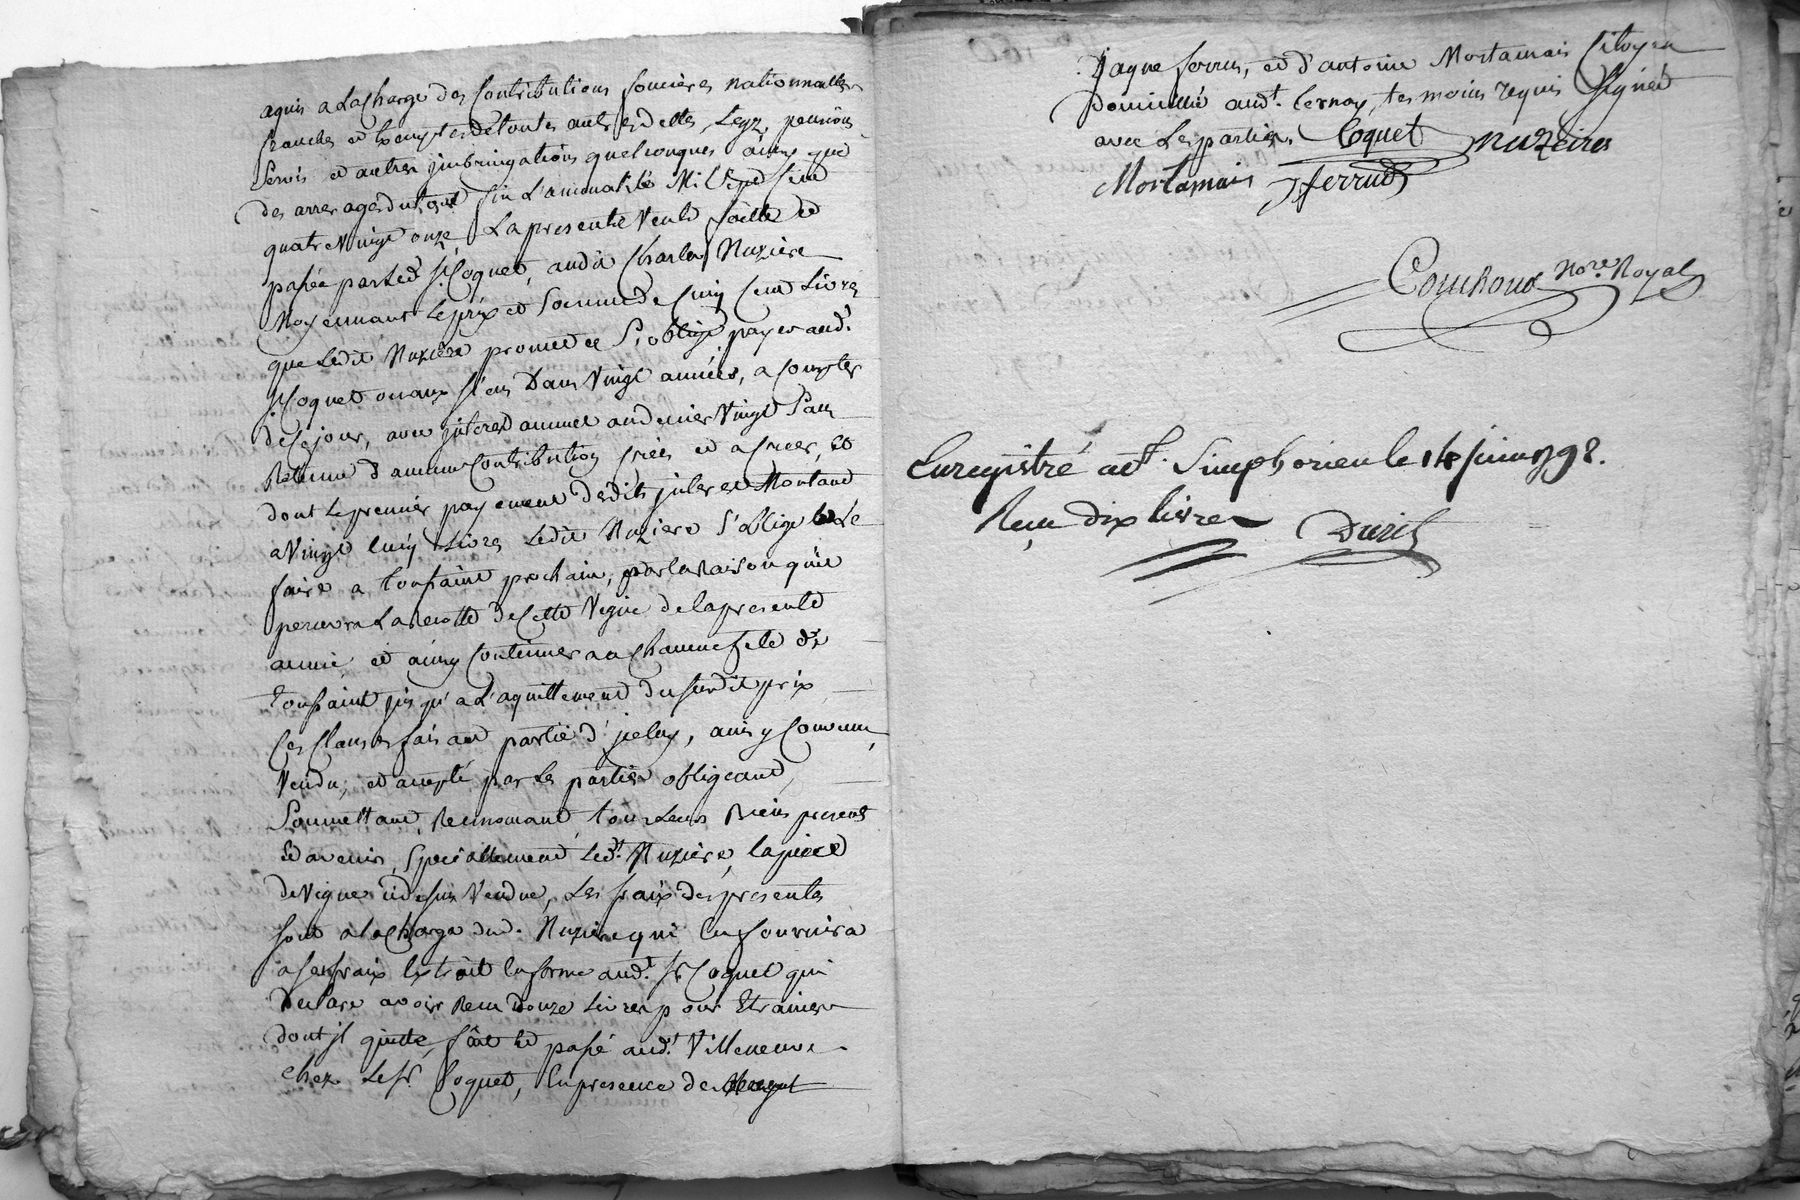 aquis a la Charge des Contributions foncières nationnalles
franches et Exemptes de toutes autres dettes, Legz, pensions
Servis et autres jmbringations quelconques ainsy que
des arrerages du tout fin L'annualité Mil Sept Cent
quatre Vingt onze, La presente Vente faitte et
passée par Led. Sr. Coquet, aud. Charles Nuziere
Moyennant Le prix et Somme de Cinq Cent Livres
que Ledit Nuziere promet et S'oblige payer aud.t
Sr. Coquet ou aux siens Dans Vingt années, a Compter
de Ce jour, avec jnterest annuel au denier Vingt Sans
Retenue d'aucune Contribution Créés et a Créer, et
dont Le premier payement desdits jnterest Montant
a Vingt Cinq Livres Ledit Nuziere S'oblige Le
faire a toussaint prochain, par la Raison qu'il
percevra La Recolte de Cette Vigne de la presente
année et ainsy Continuer a a Chacune fete de
toussaint jusqu'a L'aquittement du susdit prix
Ces Clauses faisant partie d'jcelluy, ainsy Convenu,
Vendu, et accepté par les parties obligeant,
Soumettant, Renonceant, tous Leurs Biens presents
et avenir, Specialement Led.t Nuziere, la piece
de Vigne cidessus Vendue, Les fraix des presentes
sont a la Charge dud. Nuziere qui En fournira
a ses fraix Extrait En forme aud.t Sr. Coquet qui
Declare avoir Reçu Douze Livres pour Etraines
dont jl quitte, fait et passé aud.t Villeneuve
Chez Le Sr. Coquet, En presence de
Jaque ferrus, et d'antoine Mortamais Citoyen
Domicillié aud.t Ternay, tesmoins requis Signés
avec Les parties, Coquet Nuzeires
Mortamais Jferrus
Couchoud Nore. Royal
Enregistré a St. Simphorien le 14 juin 1792.
Reçu dix livres